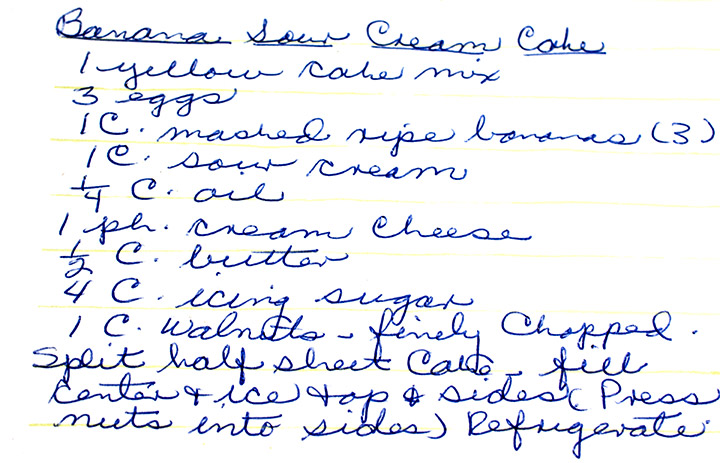 Banana Sour Cream Cake
1 yellow cake mix
3 eggs
1 C. mashed ripe bananas (3)
1 C. sour cream
1/4 C. oil
1 pk. cream cheese
1/2 C. butter
4 C. icing sugar
1 C. walnuts - finely chopped.
Split half sheet Cake - fill
center & ice top & sides (Press
nuts into sides) Refrigerate.